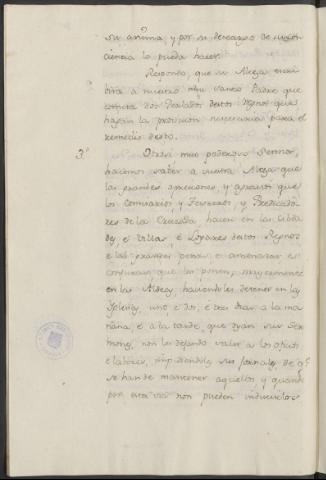 su anima, y por su descargo de su con
ciencia lo pueda hacer.
Respondo, que su Alteza escri
birá a nuestro muy Santo Padre que
cometa dos Prelados destos Regnos que
hagan la provision necesaria para el
remedio desto.
3.º Otrosi muy poderoso Sennor,
hacemos saber a vuestra Alteza que
las grandes opresiones, y agravios que
los Comisarios y Tesoreros, y Predicado
res de la Cruzada, hacen en las Cibda
des, e Villas e Lugares destos Regnos
e las grandes penas, e amenazas es
que los ponen, mayormente
en las Aldeas, haciendoles detener en las
Iglesias, uno e dos, e tres dias a la ma
ñana, e a la tarde, que oyan sus Ser
mones, non les dejando salir a los oficios
e labores, impidiendoles sus jornales, de q.e
se han de mantener aquellos, y quando
por esta via non pueden inducirlos